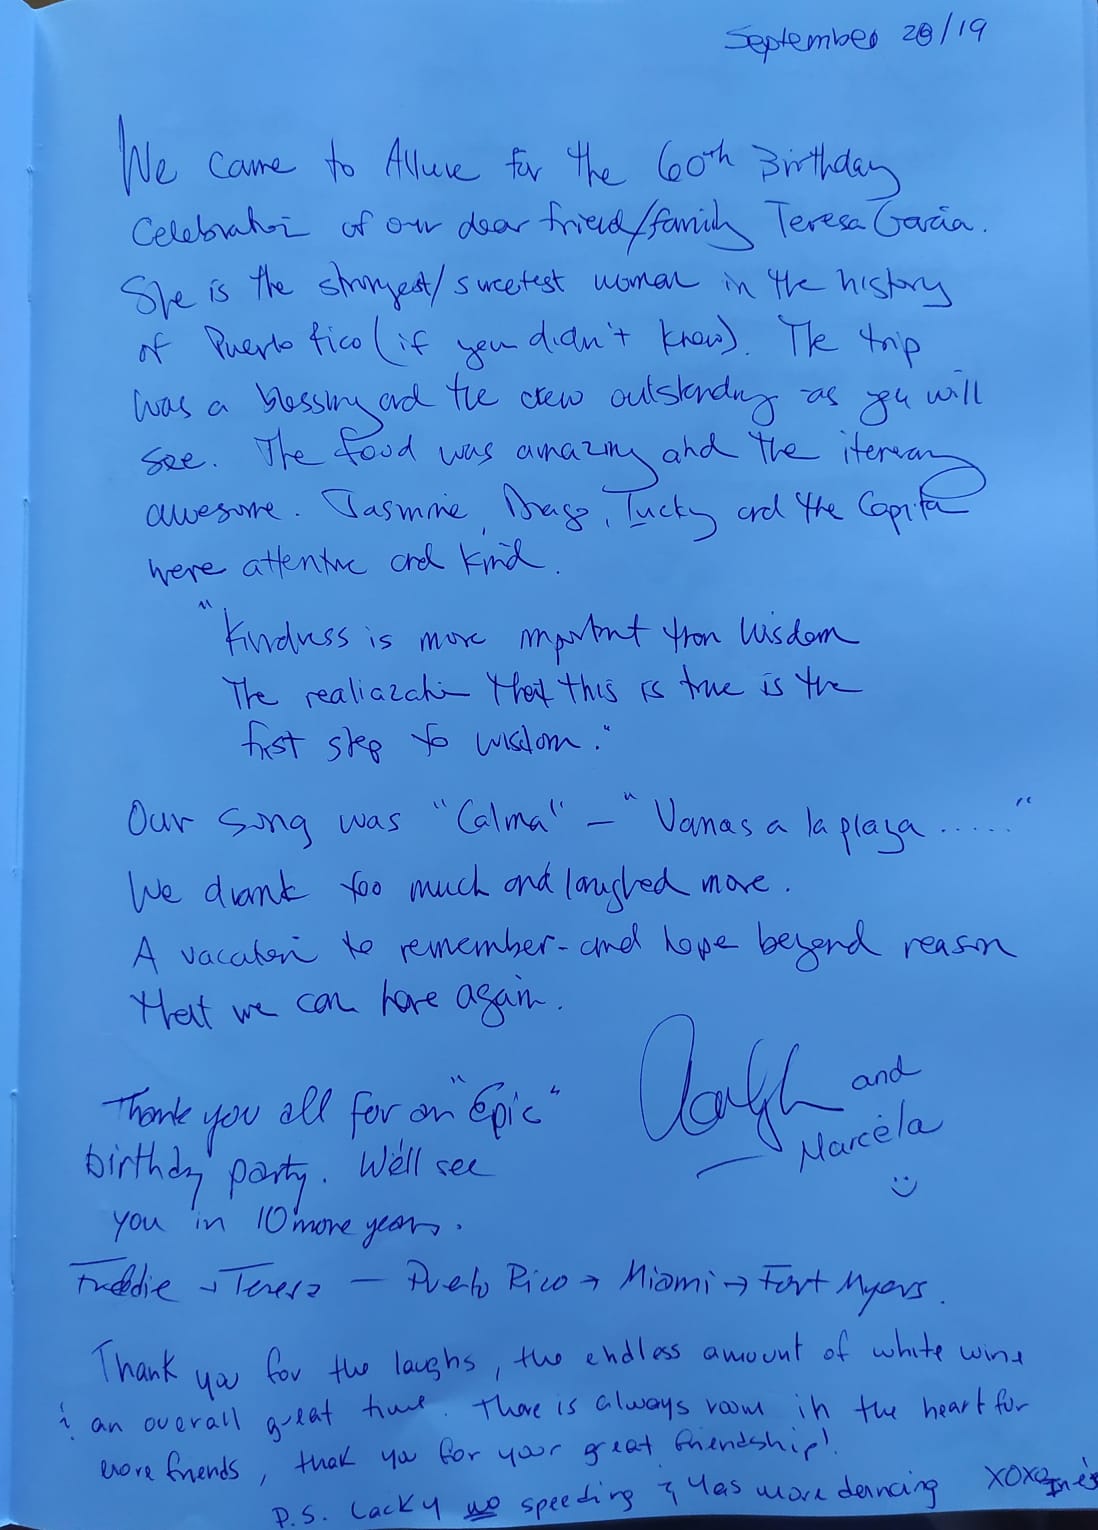 September 28/19
We came to Allure for the 60th Birthday
Celebration of our dear friend/family Teresa Garcia.
She is the strongest/sweetest woman in the history
of Puerto Rico (if you didn't know). The trip
was a blessing and the crew outstanding as you will
see. The food was amazing and the itererary
awesome. Jasmine, Drago, Lucky and the Capita
were attentive and kind.
"Kindness is more important than Wisdom
The realiazation that this is true is the
first step to wisdom."
Our song was "Calma" – "Vanas a la plaza ....."
We drank too much and laughed more.
A vacation to remember - and hope beyond reason
that we can have again.
and
Marcela
Thank you all for an "Epic"
birthday party. We'll see
you in 10 more years.
Freddie → Teresa — Puerto Rico → Miami → Fort Myers.
Thank you for the laughs, the endless amount of white wine
& an overall great time. There is always room in the heart for
more friends, thak you for your great friendship!
P.S. Lacky no speeding & Yas more dancing XOXO Inés